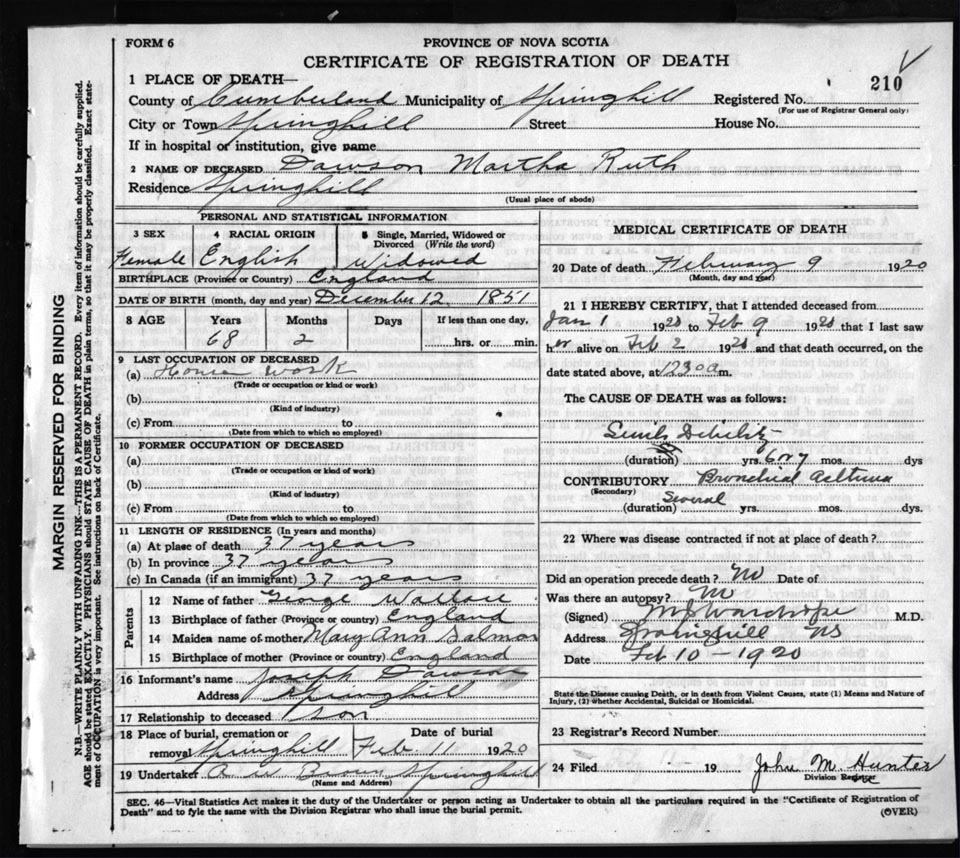 FORM 6
PROVINCE OF NOVA SCOTIA
CERTIFICATE OF REGISTRATION OF DEATH
210
1 PLACE OF DEATH—
County of Cumberland Municipality of Springhill Registered No.
(For use of Registrar General only)
City or Town Springhill Street House No.
If in hospital or institution, give name
2 NAME OF DECEASED Dawson Martha Ruth
Residence Springhill
(Usual place of abode)
MARGIN RESERVED FOR BINDING
N.B.—WRITE PLAINLY WITH UNFADING INK—THIS IS A PERMANENT RECORD. Every item of information should be carefully supplied.
AGE should be stated EXACTLY. PHYSICIANS should STATE CAUSE OF DEATH in plain terms, so that it may be properly classified. Exact state-
ment of OCCUPATION is very important. See instructions on back of Certificate.
PERSONAL AND STATISTICAL INFORMATION
3 SEX 4 RACIAL ORIGIN 5 Single, Married, Widowed or
Divorced (Write the word)
Female English Widowed
BIRTHPLACE (Province or Country) England
DATE OF BIRTH (month, day and year) December 12 1851
8 AGE Years Months Days If less than one day,
68 2 hrs. or min.
9 LAST OCCUPATION OF DECEASED
(a) House work
(Trade or occupation or kind or work)
(b)
(Kind of industry)
(c) From to
(Date from which to which so employed)
10 FORMER OCCUPATION OF DECEASED
(a)
(Trade or occupation or kind of work)
(b)
(Kind of industry)
(c) From to
(Date from which to which so employed)
11 LENGTH OF RESIDENCE (In years and months)
(a) At place of death 37 years
(b) In province 37 years
(c) In Canada (if an immigrant) 37 years
Parents
12 Name of father George Wallace
13 Birthplace of father (Province or country) England
14 Maiden name of mother Mary Ann Salmon
15 Birthplace of mother (Province or country) England
16 Informant's name Joseph Dawson
Address Springhill
17 Relationship to deceased son
18 Place of burial, cremation or Date of burial
removal Springhill Feb 11 1920
19 Undertaker A W Springhill
(Name and Address)
MEDICAL CERTIFICATE OF DEATH
20 Date of death February 9 1920
(Month, day and year)
21 I HEREBY CERTIFY, that I attended deceased from
Jan 1 1920 to Feb 9 1920 that I last saw
her alive on Feb 2 1920 and that death occurred, on the
date stated above, at 12 30 a m.
The CAUSE OF DEATH was as follows:
Senile Debility
(duration) yrs. 6 or 7 mos. dys
CONTRIBUTORY Bronchial Asthma
(Secondary)
(duration) Several yrs. mos. dys.
22 Where was disease contracted if not at place of death?
Did an operation precede death? No Date of
Was there an autopsy? No
(Signed) Wardrope M.D.
Address Springhill NS
Date Feb 10 - 1920
State the Disease causing Death, or in death from Violent Causes, state (1) Means and Nature of
Injury, (2) whether Accidental, Suicidal or Homicidal.
23 Registrar's Record Number
24 Filed 19 John M. Hunter
Division Registrar
SEC. 46—Vital Statistics Act makes it the duty of the Undertaker or person acting as Undertaker to obtain all the particulars required in the "Certificate of Registration of
Death" and to fyle the same with the Division Registrar who shall issue the burial permit.
(OVER)